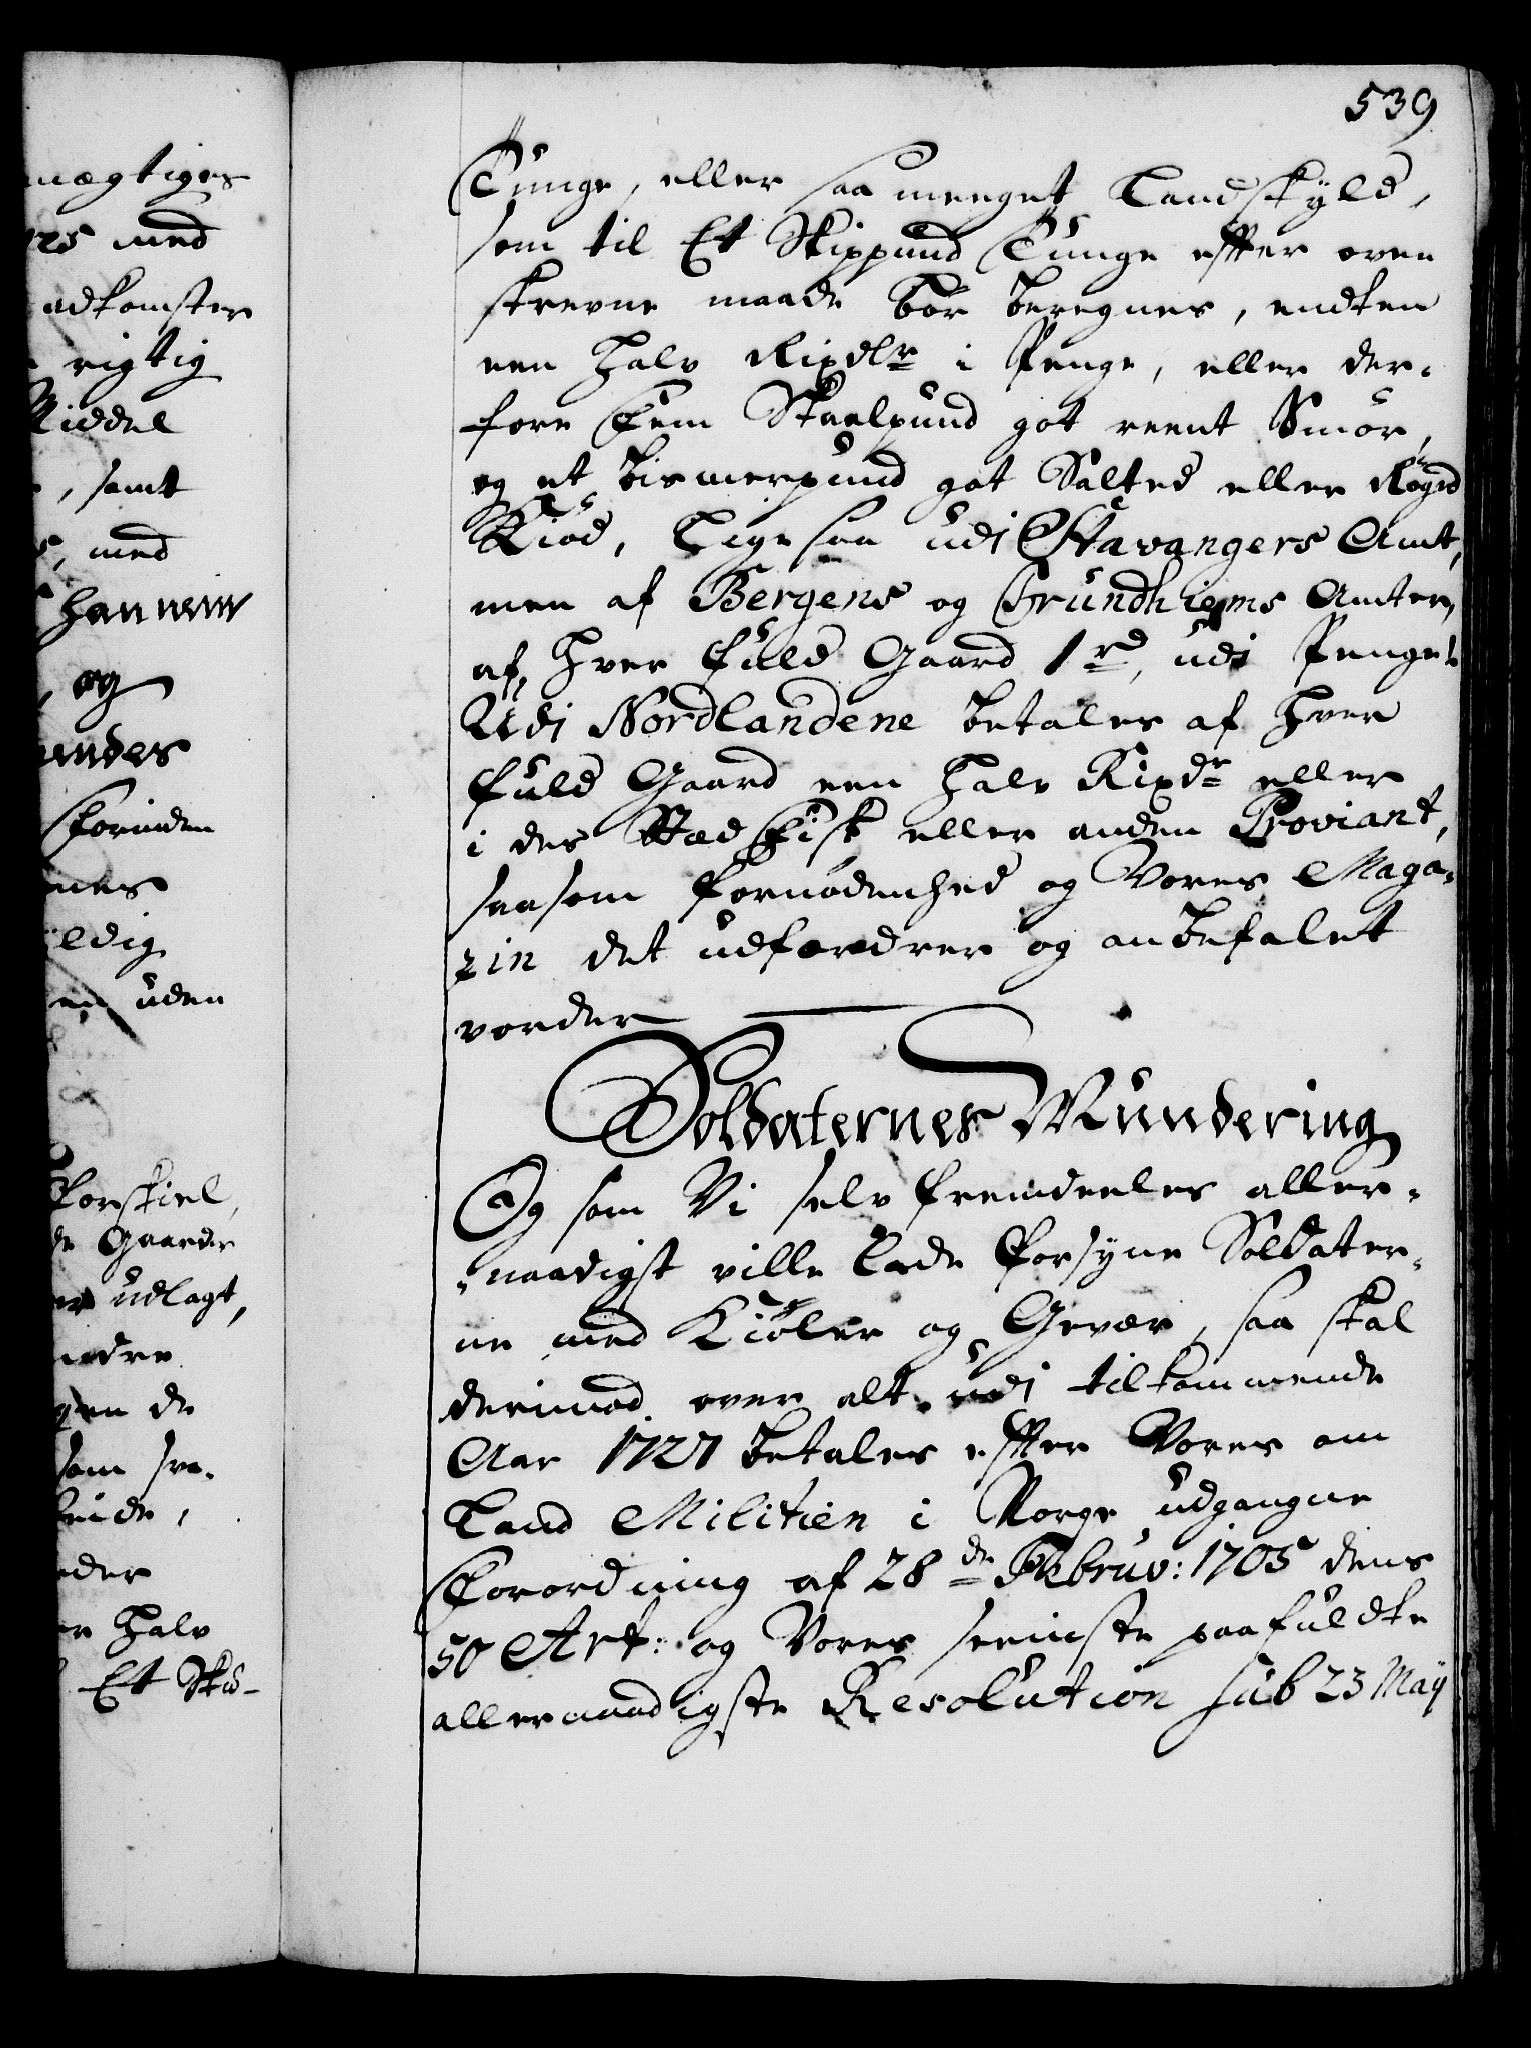 539
Tunge, eller saa meeget Landskyld,
som til Et Skippund Tunge effter oven
skrevne maade bör beregnes, endten
een halv Rixdlr i Penge, eller der-
fore Fem Skaalpund got reent Smör,
og et bismerpund got Salted eller Röged
Kiöd, Lige saa udi Stavangers Amt,
men af Bergens og Trundhiems Amter,
af hver fuld Gaard 1 rd, udi Penge
Udi Nordlandene betales af hver
fuld Gaard een halv Rixdr eller
i des stæd Fisk eller anden Proviant,
saasom fornödenhed og Vores Maga-
zin det udfordrer og anbefalet
vorder
Soldaternes Mundering
Og som Vi selv fremdeeles aller-
naadigst ville lade forsyne Soldater-
ne med Kioler og Gevær, saa skal
derimod over alt udi tilkommende
Aar 1727 betales effter Vores om
Land Militien i Norge udgangne
Forordning af 28de Februv: 1705 dens
50 Art: og Vores seeniste paafuldte
allernaadigste Resolution sub 23 Maÿ
mægtiges
125 med
adkomster
rigtig
Middel
, samt
med
hannem
, og
Forinden
uden
Forskiel,
de Gaarder
udlagt,
andre
de
som sva-
halv
Et Skÿ-